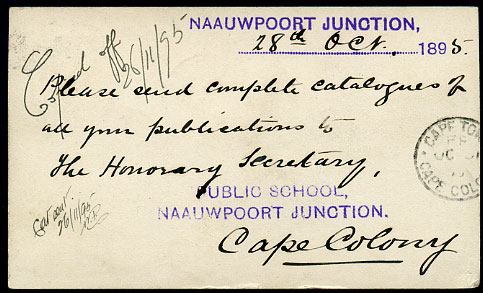 NAAUWPOORT JUNCTION,
28th Oct. 1895.
off
26/11/95
Please send complete catalogues of
all your publications to
The Honorary Secretary,
PUBLIC SCHOOL,
NAAUWPOORT JUNCTION.
Cape Colony
26/11/95
CAPE TOW
OC
CAPE COLO